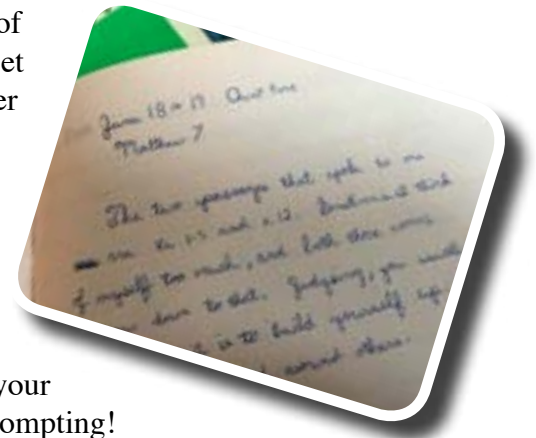 of
et
er
June 18 - 19 Quiet time
Matthew 7
The two passages that spoke to me
are v. 1-5 and v. 12. Sometimes I think
of myself too much, and both these
down to that. Judging, you
is to build yourself up
around others.
your
ompting!